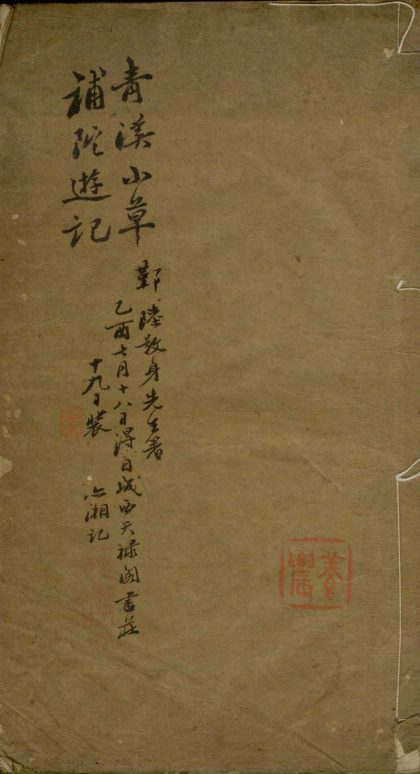 青溪小草
補陀遊記
鄞陸敬身先生著
乙酉七月十八日得自城西天禄阁書莊
十九日裝
湘記